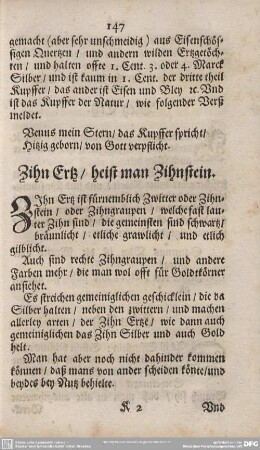 147
gemacht (aber sehr unschmeidig) aus Eisenschös-
sigen Quertzen / und andern wilden Ertzgetöch-
ten / und halten offte 1. Cent. 3. oder 4. Marck
Silber / und ist kaum in 1. Cent. der dritte theil
Kupffer / das ander ist Eisen und Bley ꝛc. Vnd
ist das Kupffer der Natur / wie folgender Verß
meldet.
Venus mein Stern / das Kupffer spricht /
Hitzig geborn / von Gott verpflicht.
Zihn Ertz / heist man Zihnstein.
ZIhn Ertz ist fürnemblich Zwitter oder Zihn-
stein / oder Zihngraupen / welche fast lau-
ter Zihn sind / die gemeinsten sind schwartz /
bräumlicht / etliche grawlicht / und etlich
gilblicht.
Auch sind rechte Zihngraupen / und andere
Farben mehr / die man wol offt für Goldtkörner
ansiehet.
Es streichen gemeiniglichen geschicklein / die da
Silber halten / neben den zwittern / und machen
allerley arten / der Zihn Ertzē / wie dann auch
gemeiniglichen das Zihn Silber und auch Gold
helt.
Man hat aber noch nicht dahinder kommen
können / daß mans von ander scheiden könte / und
beydes bey Nutz behielte.
K 2 Vnd